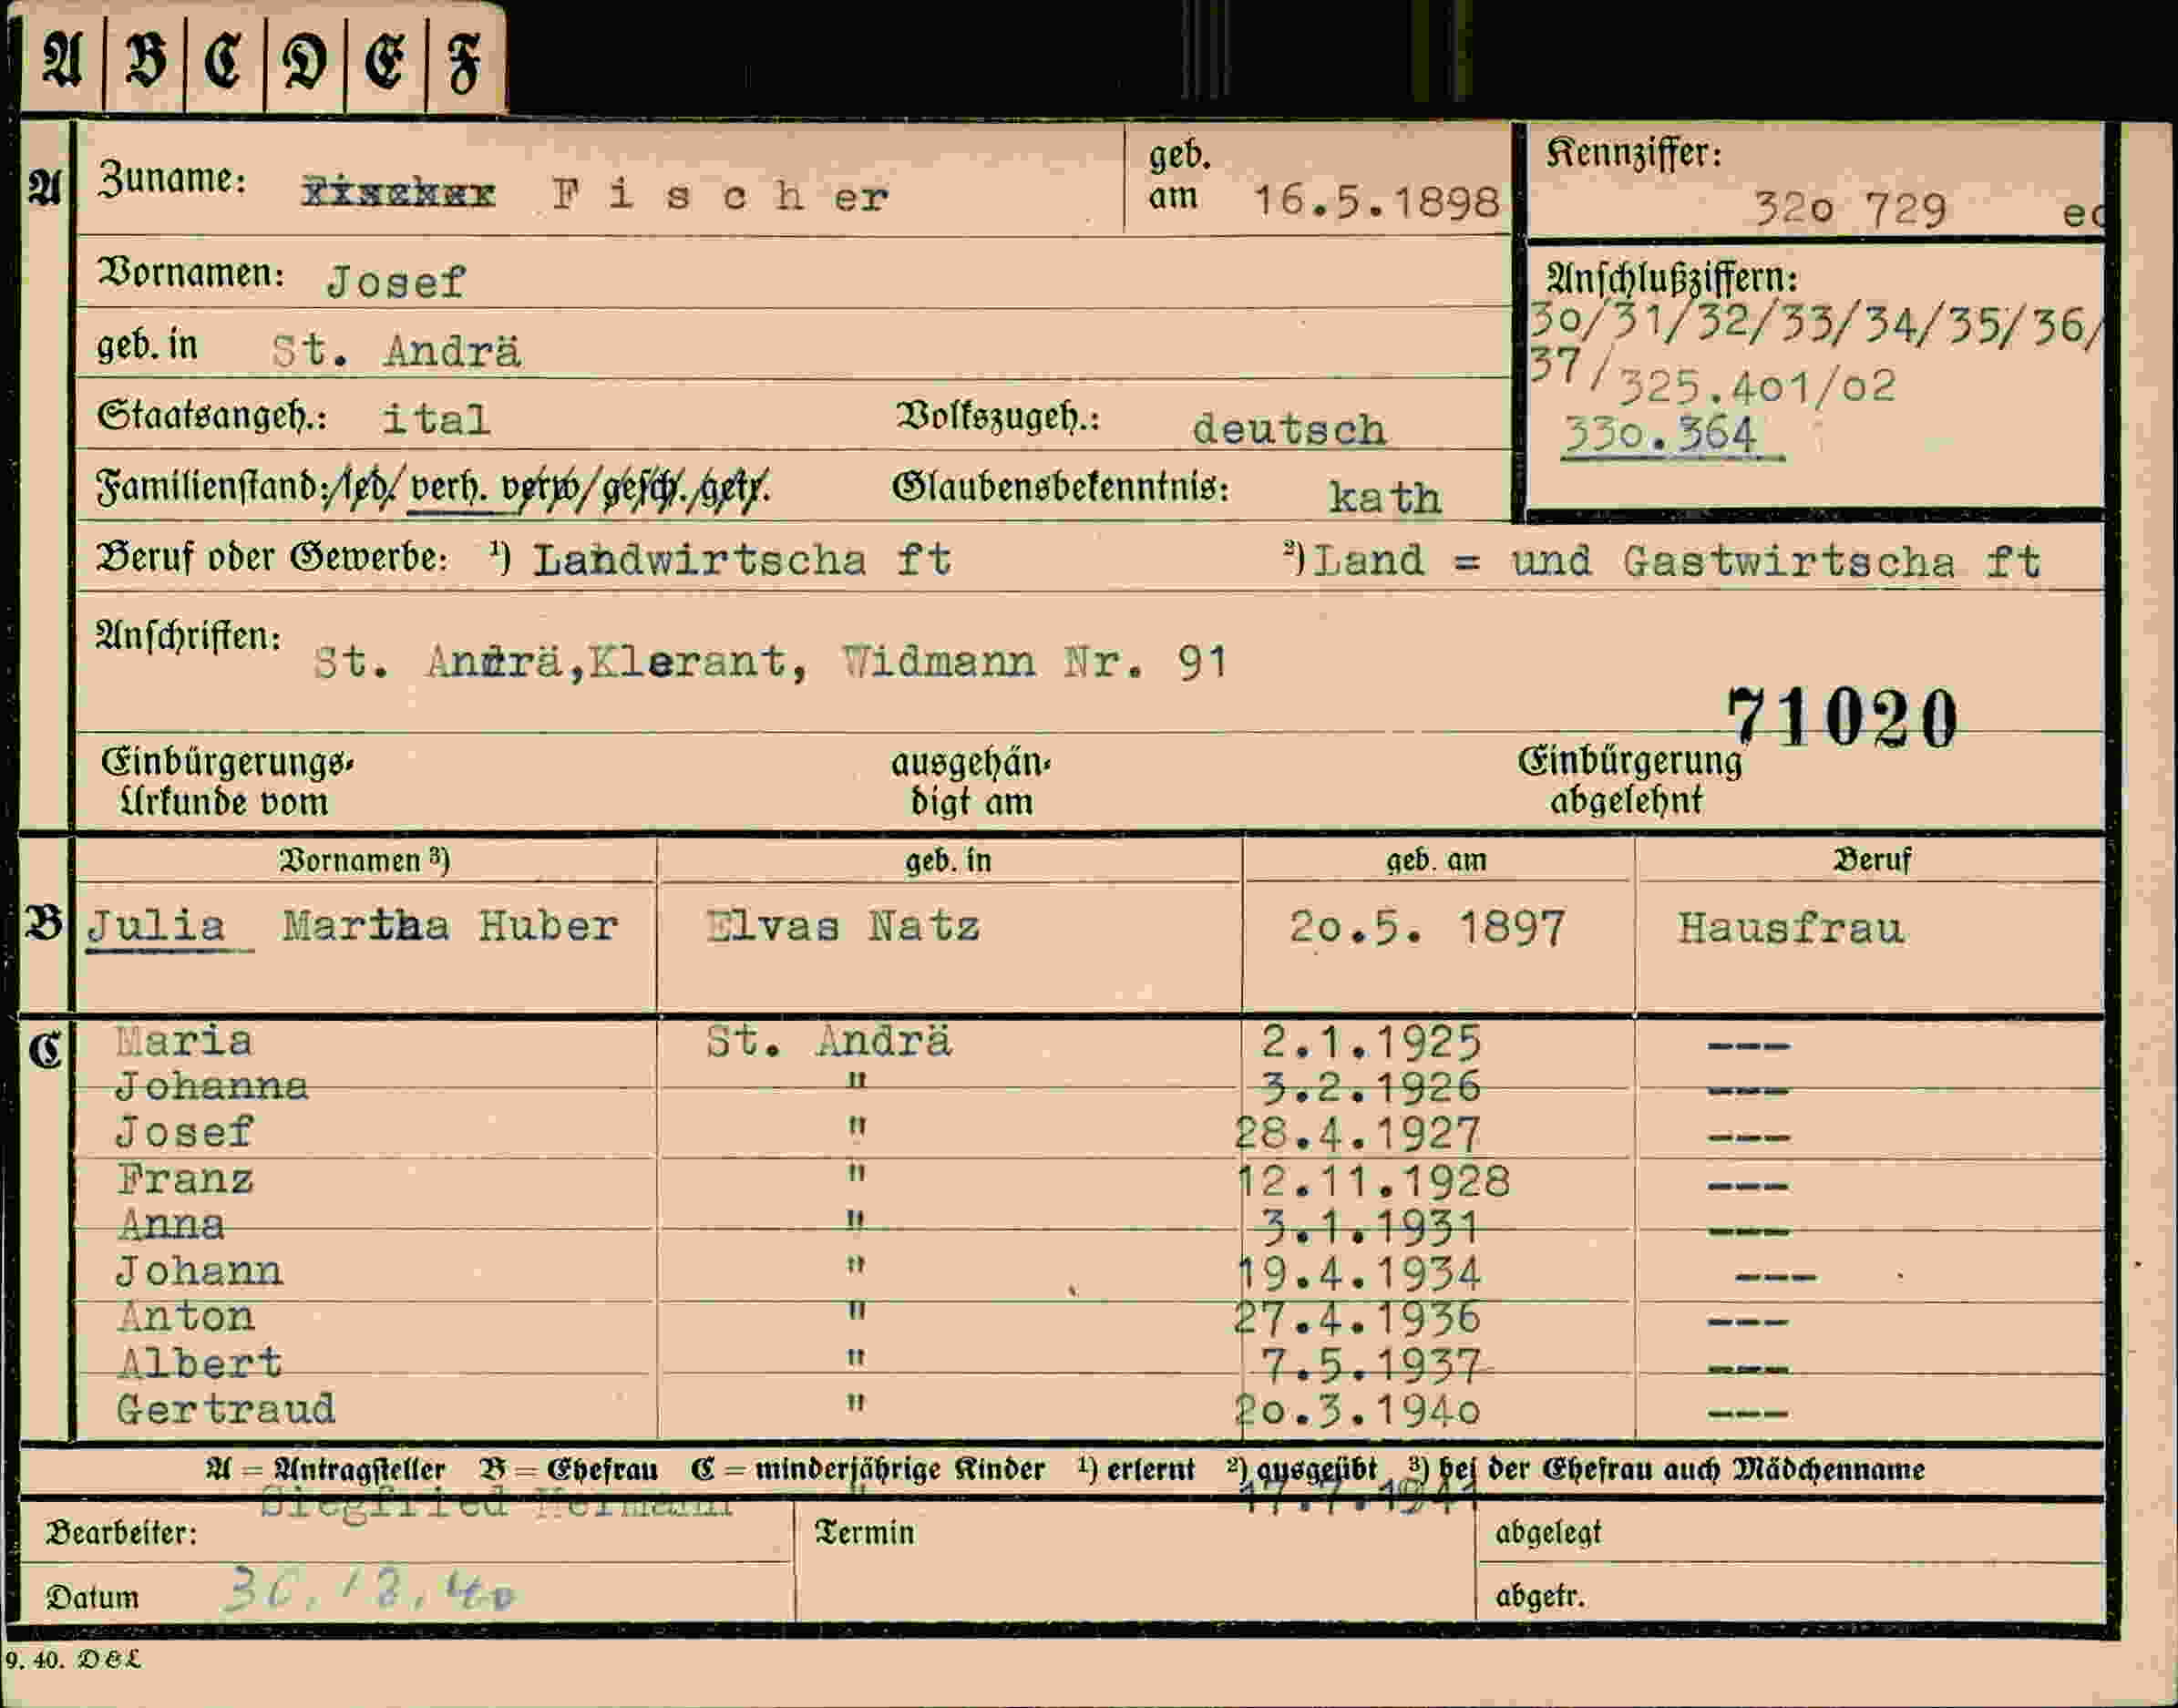 A B C D E F
A Zuname: Fischer F i s c h er geb. am 16.5.1898 Kennziffer: 32o 729
Vornamen: Josef Anschlußziffern:
30/31/32/33/34/35/36/
geb. in St. Andrä 37/325.4o1/o2
Staatsangeh.: ital Volkszugeh.: deutsch 33o.364
Familienstand: led/ verh. verw/gesch./getr. Glaubensbekenntnis: kath
Beruf oder Gewerbe: ¹) Landwirtscha ft ²) Land = und Gastwirtscha ft
Anschriften: St. Andrä,Klerant, Widmann Nr. 91
71020
Einbürgerungs- Urkunde vom ausgehän- digt am Einbürgerung abgelehnt
Vornamen ³) geb. in geb. am Beruf
B Julia Martha Huber Elvas Natz 2o.5. 1897 Hausfrau
C Maria St. Andrä 2.1.1925 ---
Johanna " 3.2.1926 ---
Josef " 28.4.1927 ---
Franz " 12.11.1928 ---
Anna " 3.1.1931 ---
Johann " 19.4.1934 ---
Anton " 27.4.1936 ---
Albert " 7.5.1937 ---
Gertraud " 2o.3.194o ---
A = Antragsteller B = Ehefrau C = minderjährige Kinder ¹) erlernt ²) ausgeübt ³) bei der Ehefrau auch Mädchenname
Siegfried Hermann " 17.7.1941
Bearbeiter: Termin abgelegt
Datum 30.12.40 abgetr.
9. 40. D&L